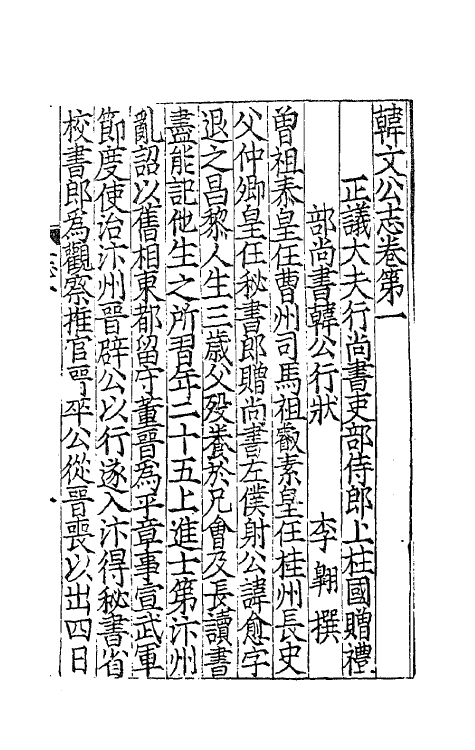 韓文公志卷第一
正議大夫行尚書吏部侍郎上柱國贈禮
部尚書韓公行狀　李翺撰
曽祖泰皇任曹州司馬祖叡素皇任桂州長史
父仲卿皇任秘書郎贈尚書左僕射公諱愈字
退之昌黎人生三歲父殁養於兄會及長讀書
盡能記他生之所習年二十五上進士第汴州
亂詔以舊相東都留守董晉爲平章事宣武軍
節度使治汴州晉辟公以行遂入汴得秘書省
校書郎為觀察推官晉卒公從晉喪以出四日